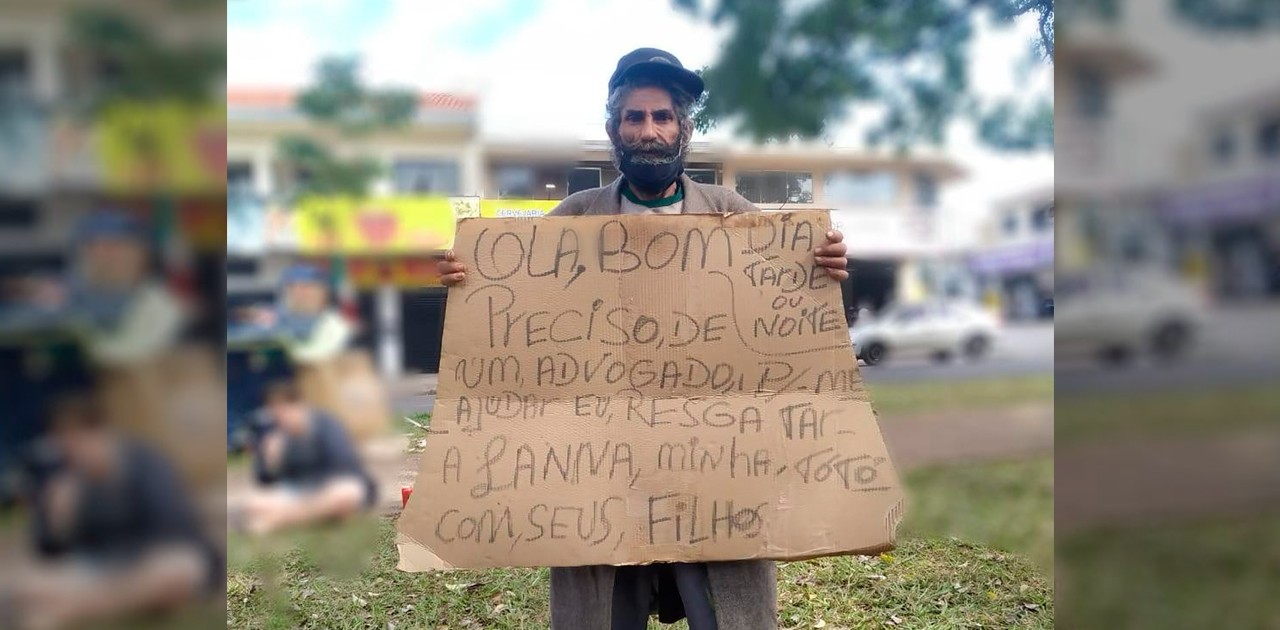 CERVEJARIA
OLA, BOM DIA
TARDE
OU
NOITE
PRECISO, DE
NUM, ADVOGADO, P/-ME
AJUDAR EU, RESGATAR
A LANNA, MINHA, TOTÓ
COM, SEUS, FILHOS